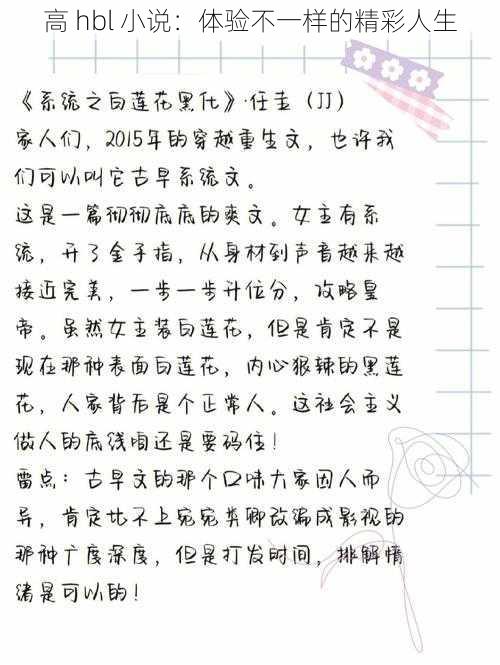 高 hbl 小说：体验不一样的精彩人生
《系统之白莲花黑化》·任圭（JJ）
家人们，2015年的穿越重生文，也许我
们可以叫它古早系统文。
这是一篇彻彻底底的爽文。女主有系
统，开了金手指，从身材到声音越来越
接近完美，一步一步升位分，攻略皇
帝。虽然女主装白莲花，但是肯定不是
现在那种表面白莲花，内心狠辣的黑莲
花，人家背后是个正常人。这社会主义
做人的底线咱还是要码住！
雷点：古早文的那个口味大家因人而
异，肯定比不上宛宛类卿改编成影视的
那种广度深度，但是打发时间，排解情
绪是可以的！